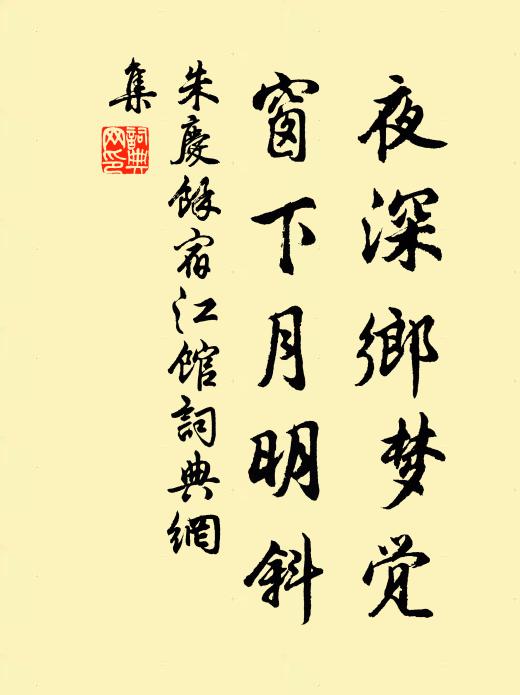 夜深鄉梦觉
窗下月明斜
朱慶餘宿江馆詞典網
集
詞典网印